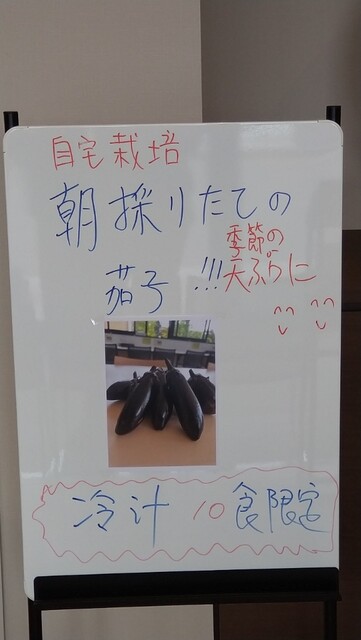 自宅栽培
朝採りたての
茄子!!!
季節の
天ぷらに
冷汁 10食限定